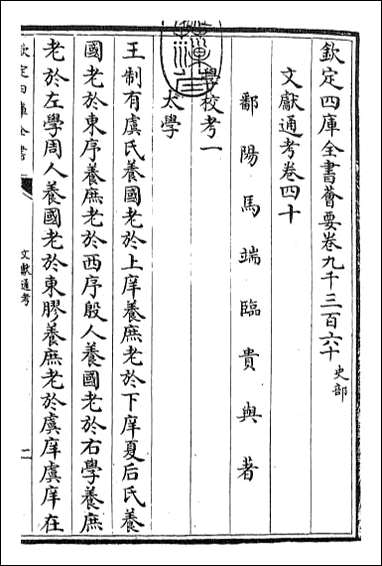 欽定四庫全書薈要卷九千三百六十 史部
文獻通考卷四十
鄱陽馬端臨貴與著
學校考一
太學
王制有虞氏養國老於上庠養庶老於下庠夏后氏養
國老於東序養庶老於西序殷人養國老於右學養庶
老於左學周人養國老於東膠養庶老於虞庠虞庠在
欽定四庫全書
文獻通考